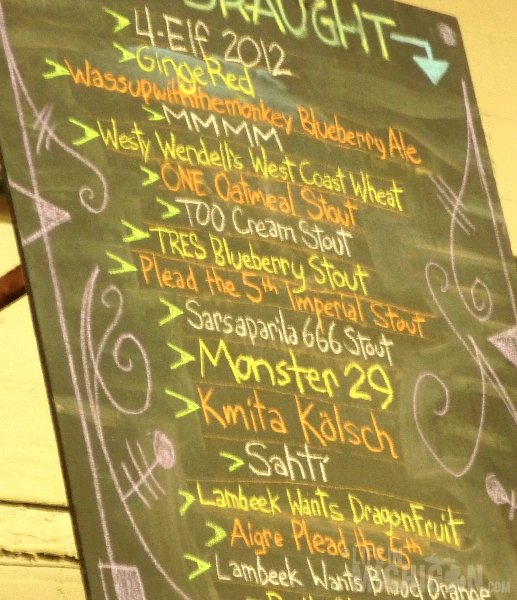 DRAUGHT
> 4-Elf 2012
> GingeRed
> Wassupwiththemonkey Blueberry Ale
> MMMM
> Westy Wendell's West Coast Wheat
> ONE Oatmeal Stout
> TOO Cream Stout
> TRES Blueberry Stout
> Plead the 5th Imperial Stout
> Sarsaparila 666 Stout
> Monster 29
> Kmita Kölsch
> Sahti
> Lambeek Wants DragonFruit
> Aigre Plead the 5th
> Lambeek Wants Blood Orange